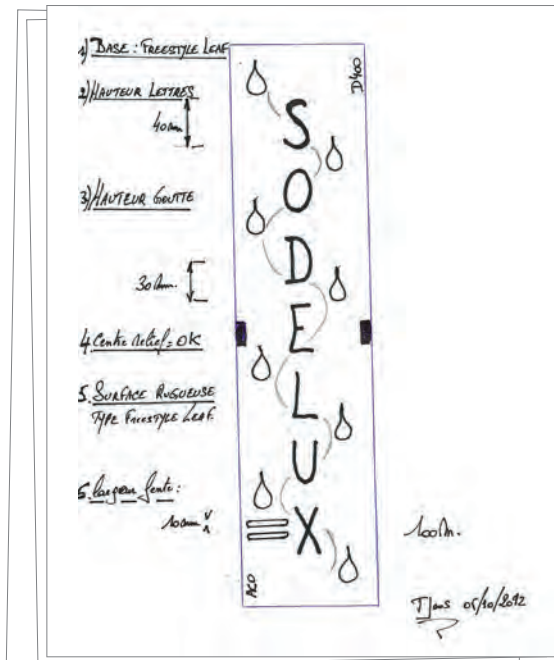 1) BASE : FREESTYLE LEAF
2) HAUTEUR LETTRES
40mm
3) HAUTEUR GOUTTE
30mm.
4. Centre relief = OK
5. SURFACE RUGUEUSE
TYPE FREESTYLE LEAF.
6. largeur fente :
10mm
D400
SODELUX
ACO
100m.
05/10/2012